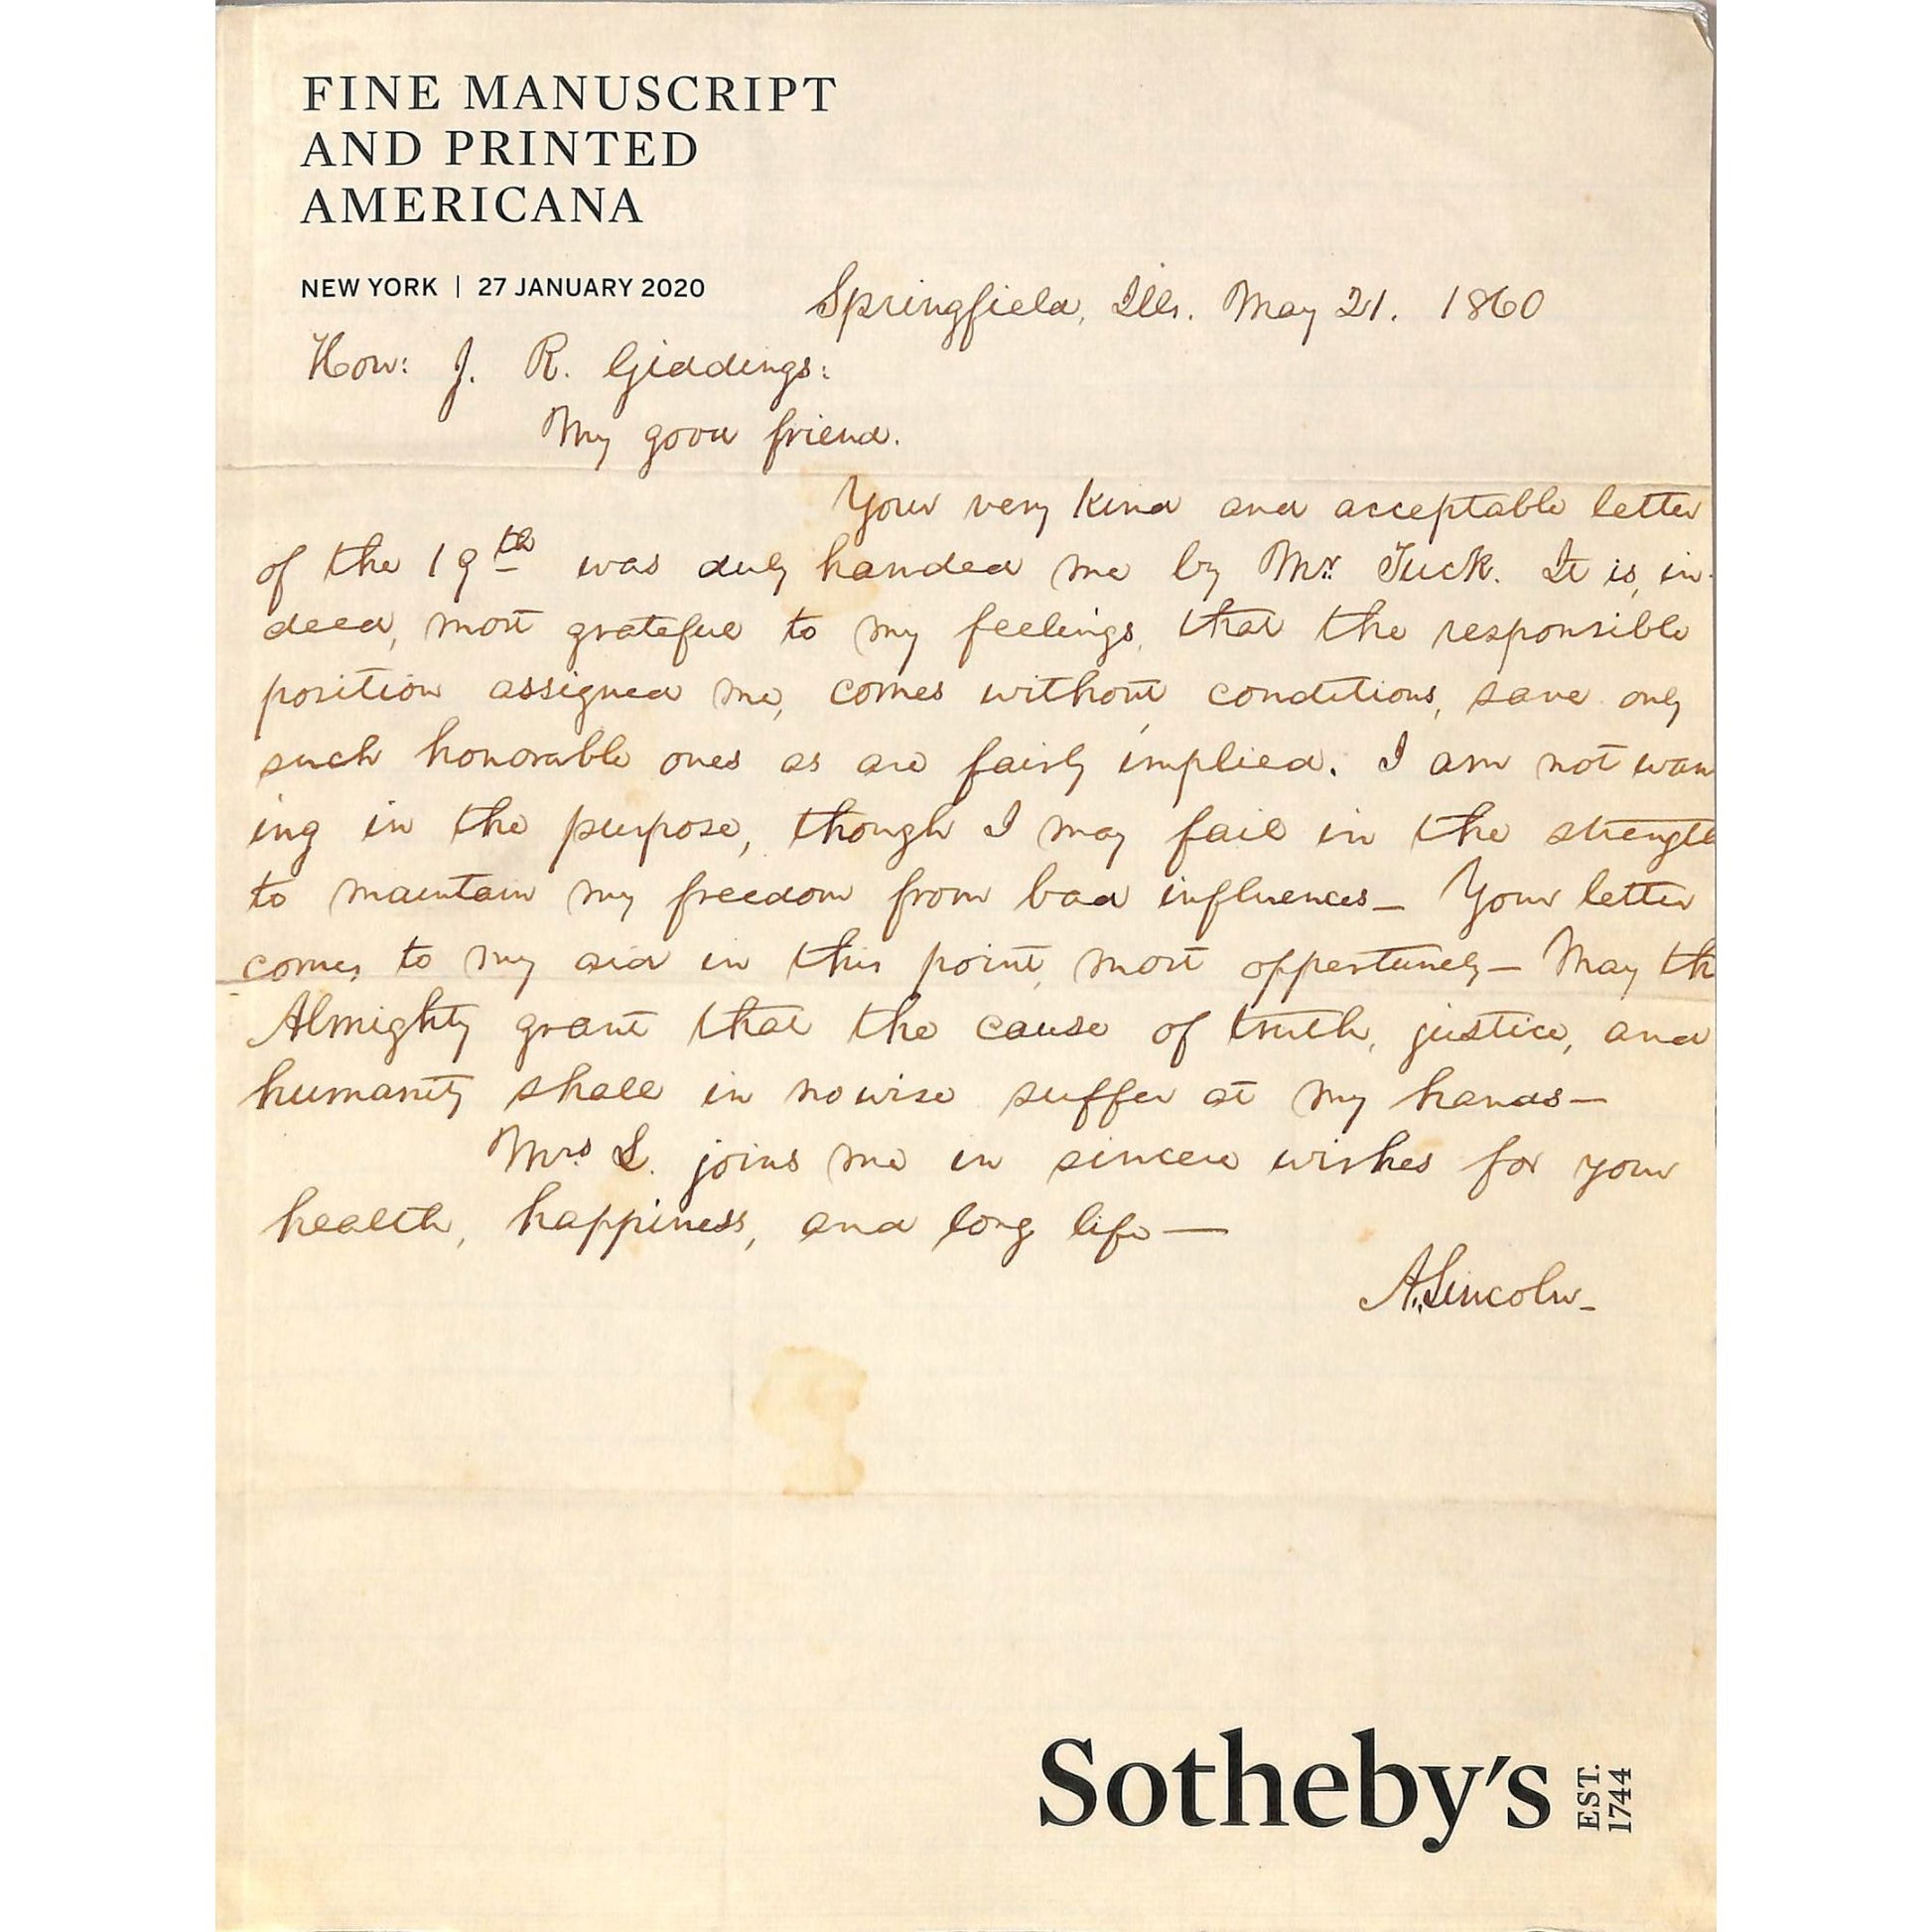 FINE MANUSCRIPT
AND PRINTED
AMERICANA
NEW YORK | 27 JANUARY 2020
Springfield, Ills. May 21. 1860
Hon: J. R. Giddings:
My good friend.
Your very kind and acceptable letter
of the 19th was duly handed me by Mr. Tuck. It is, in-
deed, most grateful to my feelings, that the responsible
position assigned me, comes without conditions, save only
such honorable ones as are fairly implied. I am not wan
ing in the purpose, though I may fail in the strength
to maintain my freedom from bad influences— Your letter
comes to my aid in this point, most opportunely— May th
Almighty grant that the cause of truth, justice, and
humanity shall in nowise suffer at my hands—
Mrs. L. joins me in sincere wishes for your
health, happiness, and long life—
A. Lincoln—
Sotheby's EST. 1744